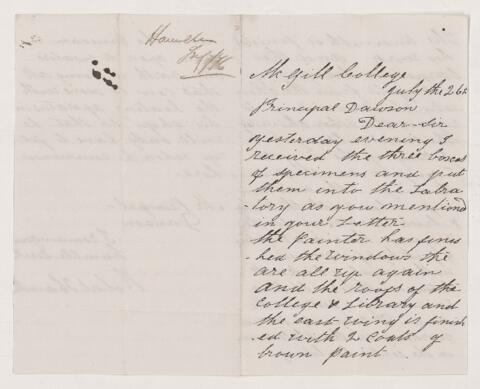 Hamilton
McGill College
July the 26th
Principal Dawson
Dear Sir
yesterday evening I
received the three boxes
of specimens and put
them into the Labra
tory as you mentiond
in your Letter
the Painter has finis
hed the windows the
are all up again
and the roofs of the
College & Library and
the east wing is finish
ed with 2 Coats of
brown paint.